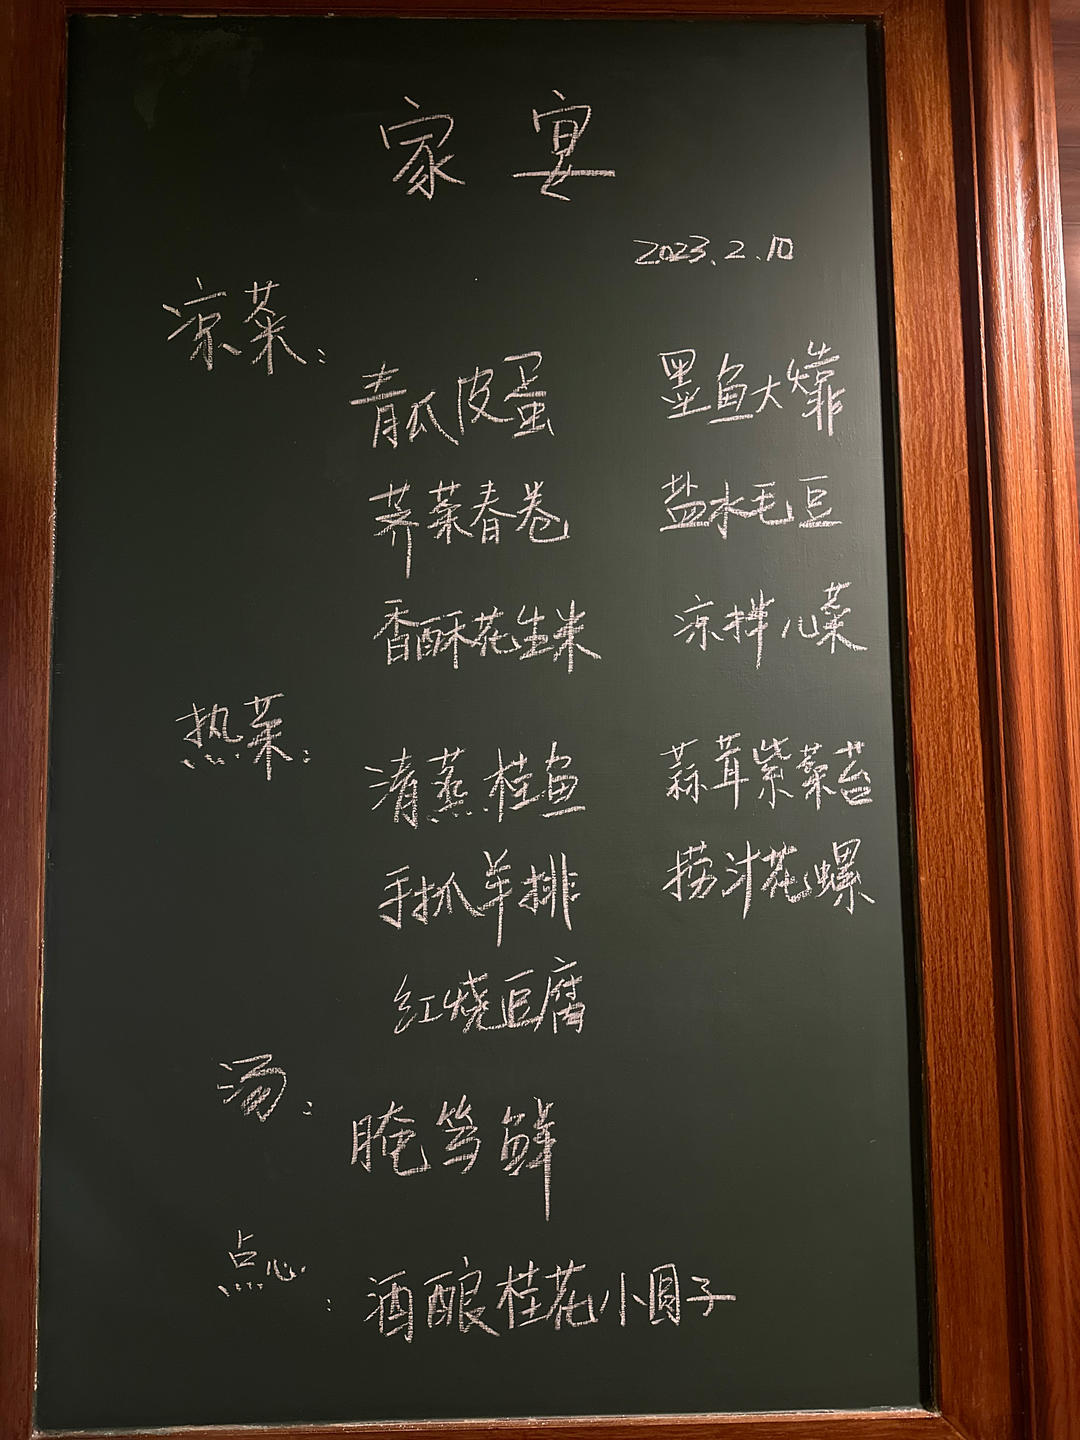 家宴
2023.2.10
凉菜:
青瓜皮蛋 墨鱼大㸆
荠菜春卷 盐水毛豆
香酥花生米 凉拌儿菜
热菜:
清蒸桂鱼 蒜茸紫菜苔
手抓羊排 捞汁花螺
红烧豆腐
汤:
腌笃鲜
点心:
酒酿桂花小圆子